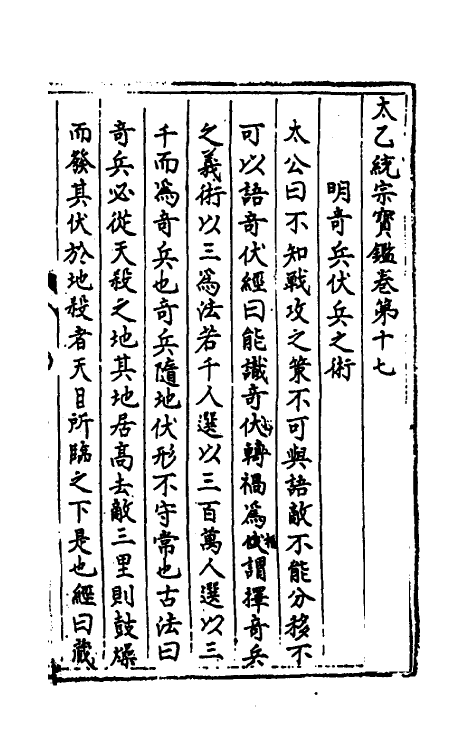 太乙統宗寶鑑卷第十七
明奇兵伏兵之術
太公曰不知戰攻之策不可與語敵不能分移不
可以語奇伏經曰能識奇伏轉禍為伏謂擇奇兵
之義術以三為法若千人選以三百萬人選以三
千而為奇兵也奇兵隨地伏形不守常也古法曰
奇兵必從天殺之地其地居高去敵三里則鼓燥
而發其伏於地殺者天目所臨之下是也經曰蔵